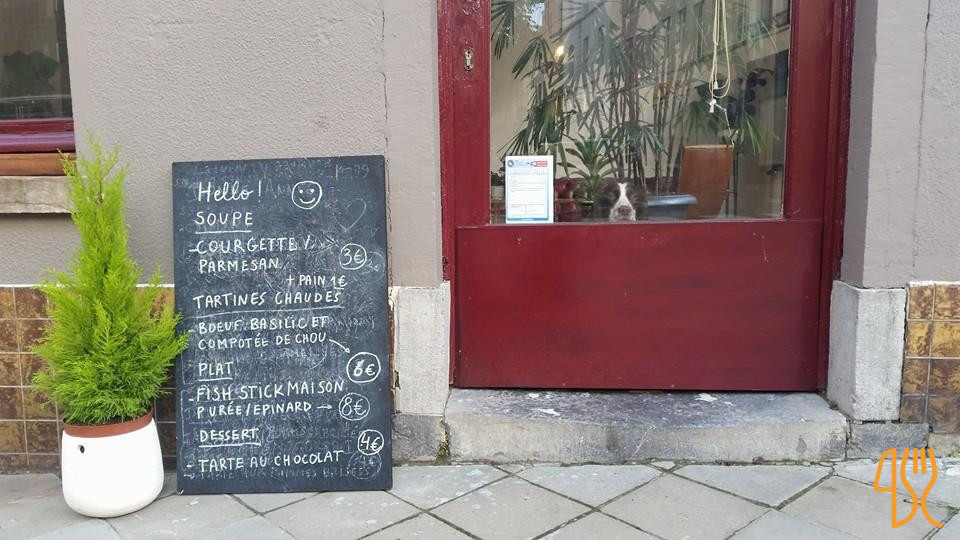 Hello!
SOUPE
- COURGETTE /
PARMESAN 3€
+ PAIN 1€
TARTINES CHAUDES
- BOEUF, BASILIC ET
COMPOTÉE DE CHOU
PLAT 6€
- FISH STICK MAISON
PURÉE/EPINARD → 8€
DESSERT 4€
- TARTE AU CHOCOLAT